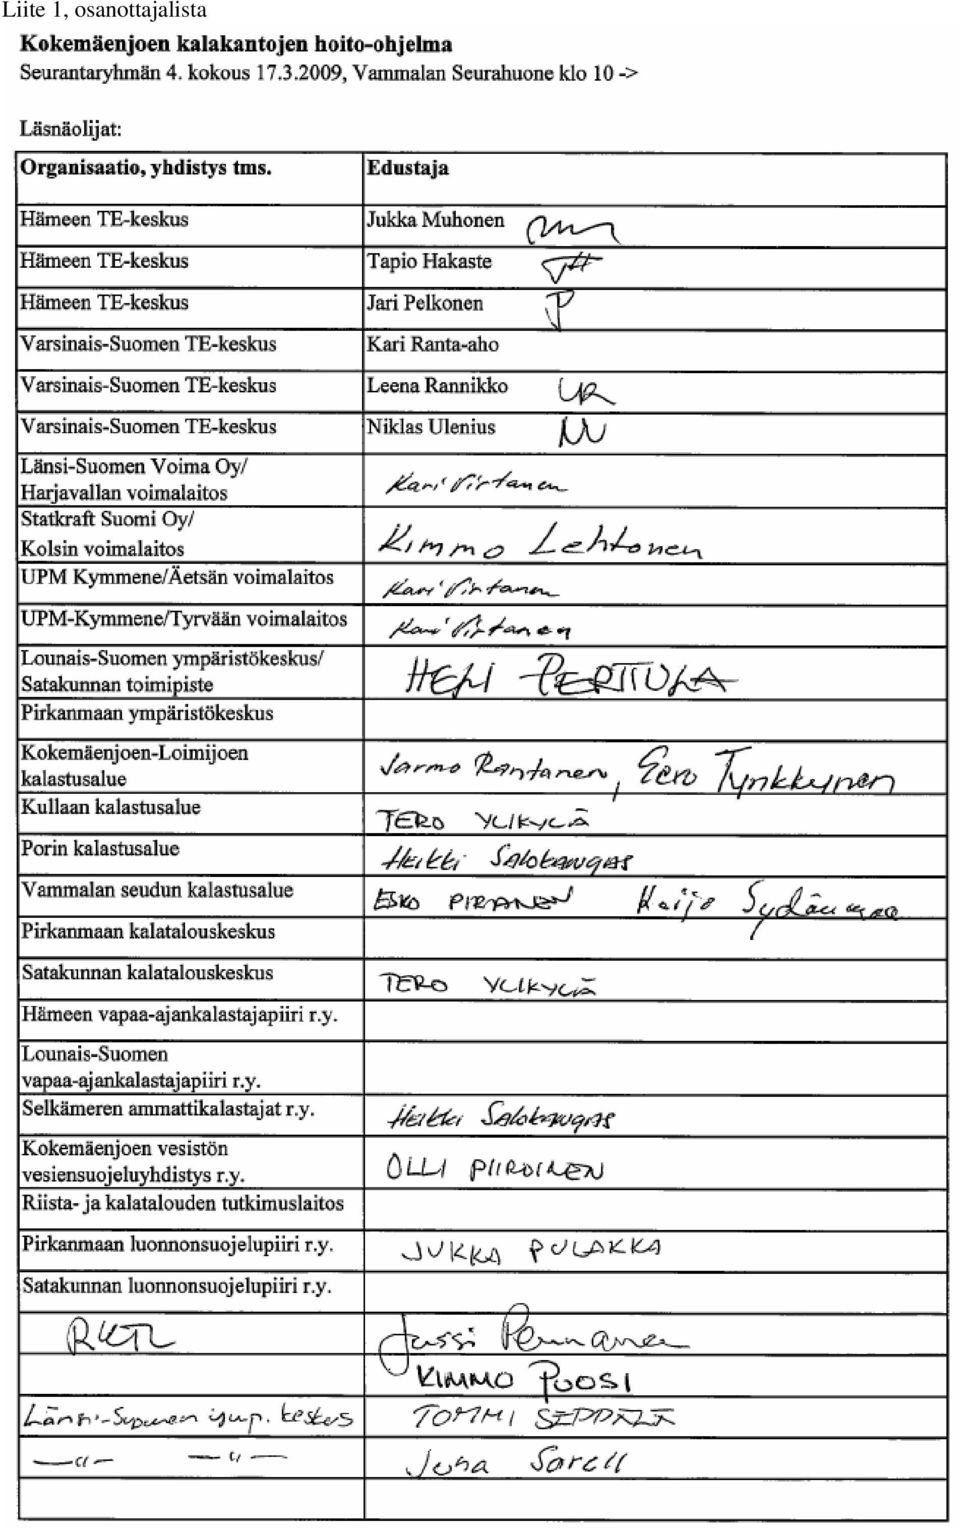 Liite 1, osanottajalista
Kokemäenjoen kalakantojen hoito-ohjelma
Seurantaryhmän 4. kokous 17.3.2009, Vammalan Seurahuone klo 10 ->
Läsnäolijat:
Organisaatio, yhdistys tms. Edustaja
Hämeen TE-keskus Jukka Muhonen
Hämeen TE-keskus Tapio Hakaste TH
Hämeen TE-keskus Jari Pelkonen JP
Varsinais-Suomen TE-keskus Kari Ranta-aho
Varsinais-Suomen TE-keskus Leena Rannikko LR
Varsinais-Suomen TE-keskus Niklas Ulenius NU
Länsi-Suomen Voima Oy/
Harjavallan voimalaitos Kari Virtanen
Statkraft Suomi Oy/
Kolsin voimalaitos Kimmo Lehtonen
UPM Kymmene/Äetsän voimalaitos Kari Virtanen
UPM-Kymmene/Tyrvään voimalaitos Kari Virtanen
Lounais-Suomen ympäristökeskus/
Satakunnan toimipiste HELI PERTTULA
Pirkanmaan ympäristökeskus
Kokemäenjoen-Loimijoen
kalastusalue Jarmo Rantanen, Eero Tynkkynen
Kullaan kalastusalue TERO YLIKYLÄ
Porin kalastusalue Heikki SALOKANGAS
Vammalan seudun kalastusalue ESKO PIRANEN Kaijo Sydänmaa
Pirkanmaan kalatalouskeskus
Satakunnan kalatalouskeskus TERO YLIKYLÄ
Hämeen vapaa-ajankalastajapiiri r.y.
Lounais-Suomen
vapaa-ajankalastajapiiri r.y.
Selkämeren ammattikalastajat r.y. Heikki SALOKANGAS
Kokemäenjoen vesistön
vesiensuojeluyhdistys r.y. OLLI PIIROINEN
Riista- ja kalatalouden tutkimuslaitos
Pirkanmaan luonnonsuojelupiiri r.y. JUKKA PULAKKA
Satakunnan luonnonsuojelupiiri r.y.
RKTL Jussi Pennanen
KIMMO PUOSI
Länsi-Suomen ymp. keskus TOMMI SEPPÄLÄ
—"— —"— Juha Sarell